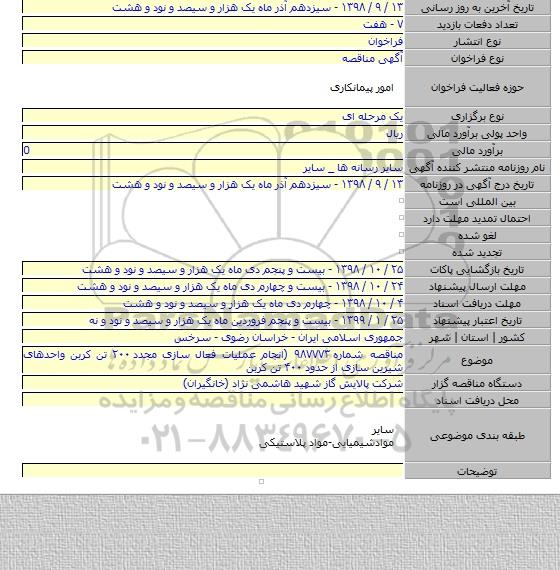 تاریخ آخرین به روز رسانی ۱۳ / ۹ / ۱۳۹۸ - سیزدهم آذر ماه یک هزار و سیصد و نود و هشت
تعداد دفعات بازدید ۷ - هفت
نوع انتشار فراخوان
نوع فراخوان آگهی مناقصه
حوزه فعالیت فراخوان امور پیمانکاری
نوع برگزاری یک مرحله ای
واحد پولی برآورد مالی ریال
برآورد مالی 0
نام روزنامه منتشر کننده آگهی سایر رسانه ها _ سایر
تاریخ درج آگهی در روزنامه ۱۳ / ۹ / ۱۳۹۸ - سیزدهم آذر ماه یک هزار و سیصد و نود و هشت
بین المللی است
احتمال تمدید مهلت دارد
لغو شده
تجدید شده
تاریخ بازگشایی پاکات ۲۵ / ۱۰ / ۱۳۹۸ - بیست و پنجم دی ماه یک هزار و سیصد و نود و هشت
مهلت ارسال پیشنهاد ۲۴ / ۱۰ / ۱۳۹۸ - بیست و چهارم دی ماه یک هزار و سیصد و نود و هشت
مهلت دریافت اسناد ۴ / ۱۰ / ۱۳۹۸ - چهارم دی ماه یک هزار و سیصد و نود و هشت
تاریخ اعتبار پیشنهاد ۲۵ / ۱ / ۱۳۹۹ - بیست و پنجم فروردین ماه یک هزار و سیصد و نود و نه
کشور | استان | شهر جمهوری اسلامی ایران - خراسان رضوی - سرخس
موضوع مناقصه شماره ۹۸۷۷۷۳ (انجام عملیات فعال سازی مجدد ۲۰۰ تن کربن واحدهای
شیرین سازی از حدود ۴۰۰ تن کربن
دستگاه مناقصه گزار شرکت پالایش گاز شهید هاشمی نژاد (خانگیران)
محل دریافت اسناد
طبقه بندی موضوعی سایر
موادشیمیایی-مواد پلاستیکی
توضیحات
پایگاه اطلاع رسانی مناقصه و مزایده
۰۲۱-۸۸۳۴۹۶۷۰-۵